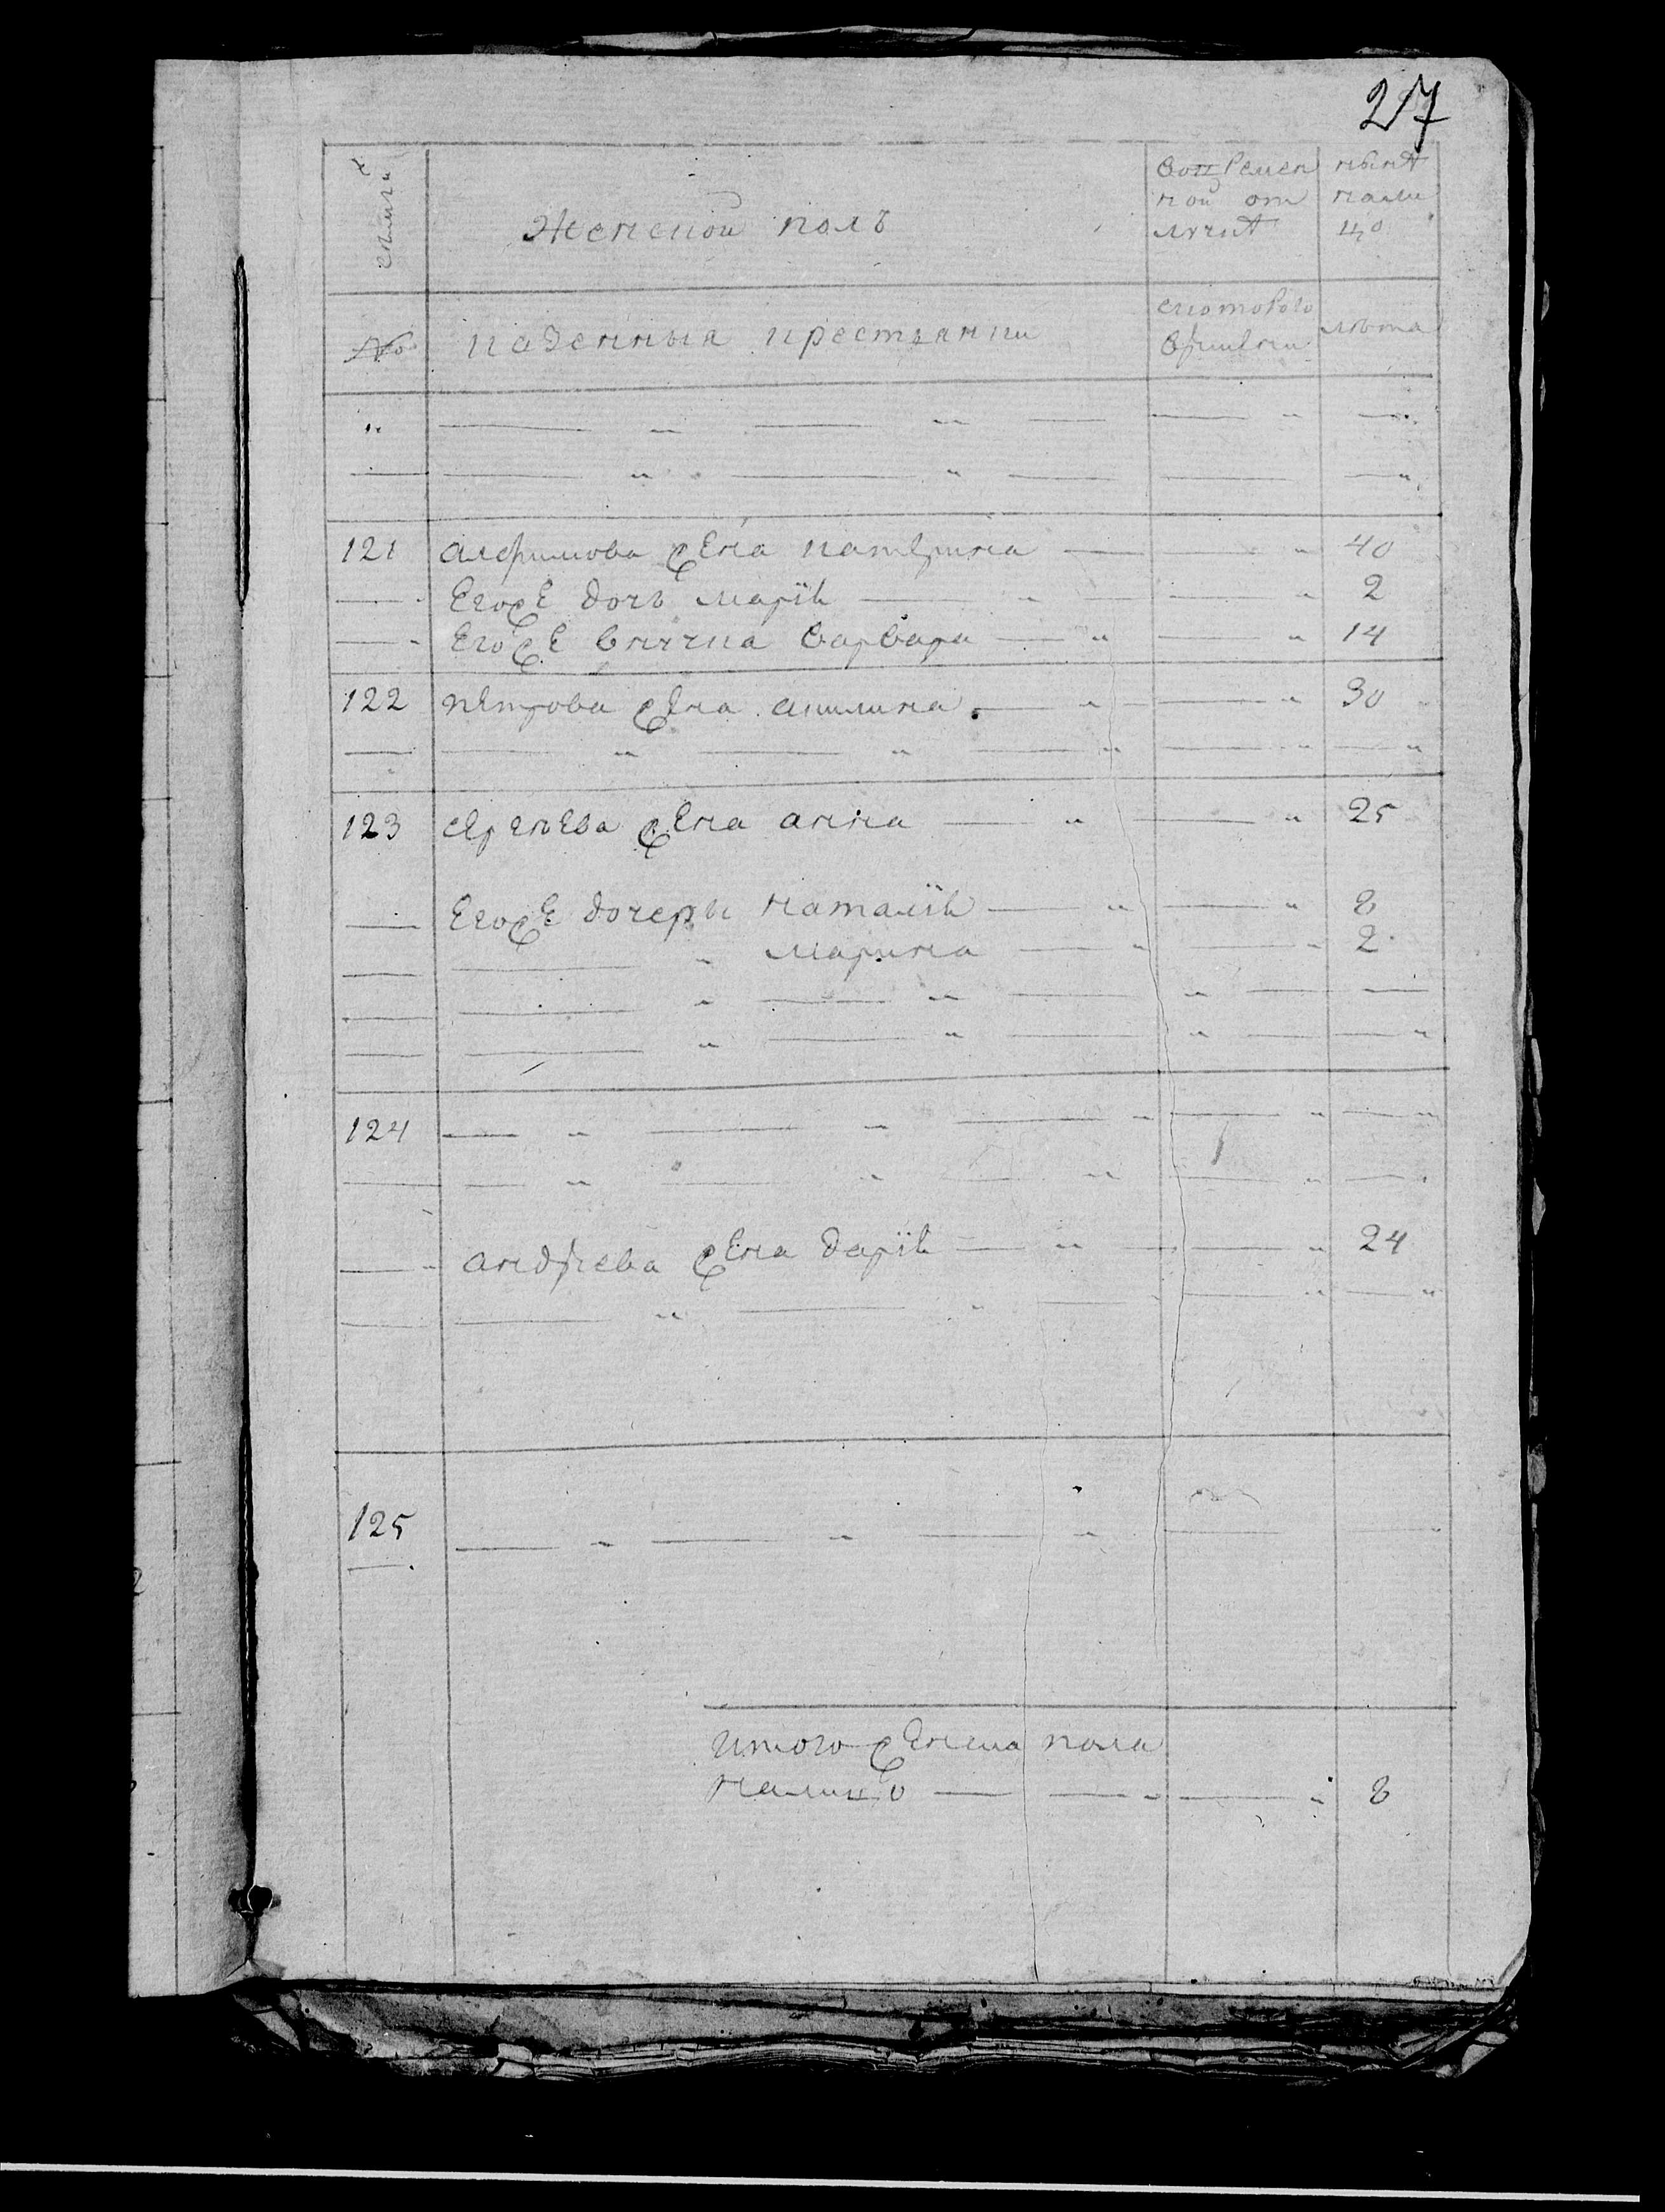 27
семьи
Женской полъ
вовремен
ной от
лучкѣ
нынѣ
нали
цо
№
казенныя крестьянки
скоторого
времѣни
лѣта
121 алфимова жена катерина — — „ 40
— Егоже дочь маріѣ — „ — — „ 2
— Егоже внучка варвара — „ — „ 14
122 петрова жена акилина — „ — „ 30
— — „ — „ — „ — „ — „
123 сергѣева жена анна — „ — „ 25
— Егоже дочери наталіѣ — „ — „ 8
— — „ марина — „ — „ 2
— — „ — „ — „ — —
— — „ — „ — „ — „
124 — „ — „ — „ — „ — „
— — „ — „ — „ — „ —
— андреева жена даріѣ — „ — „ 24
— — „ — „ — — „ — „
125 — „ — „ — „ — —
—
итого женска пола
налицо — — „ — „ 8